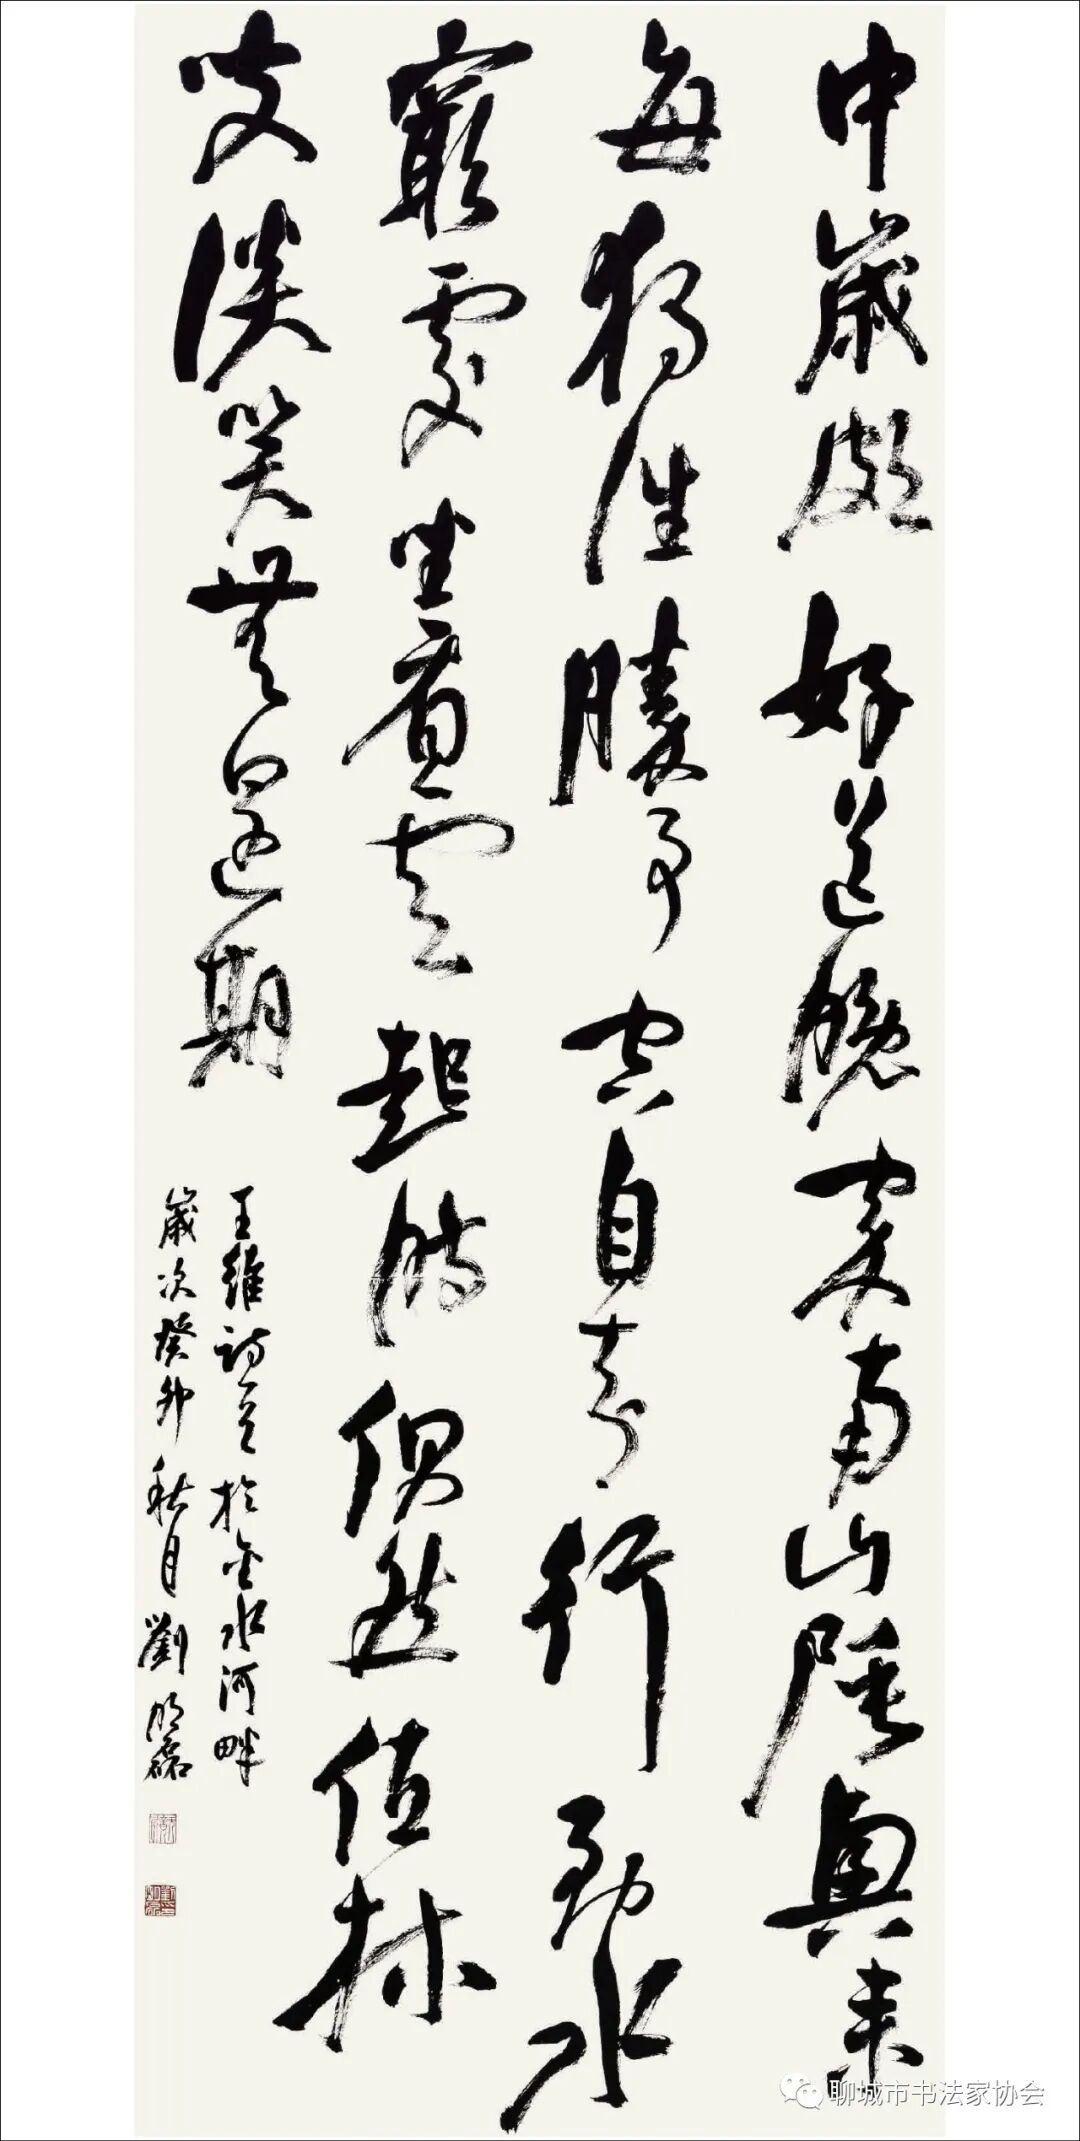 中歲頗好道晚家南山陲興來
每獨往勝事空自知行到水
窮處坐看雲起時偶然值林
叟談笑無還期
王維詩一首於金水河畔
歲次癸卯秋月劉明磊
聊城市书法家协会